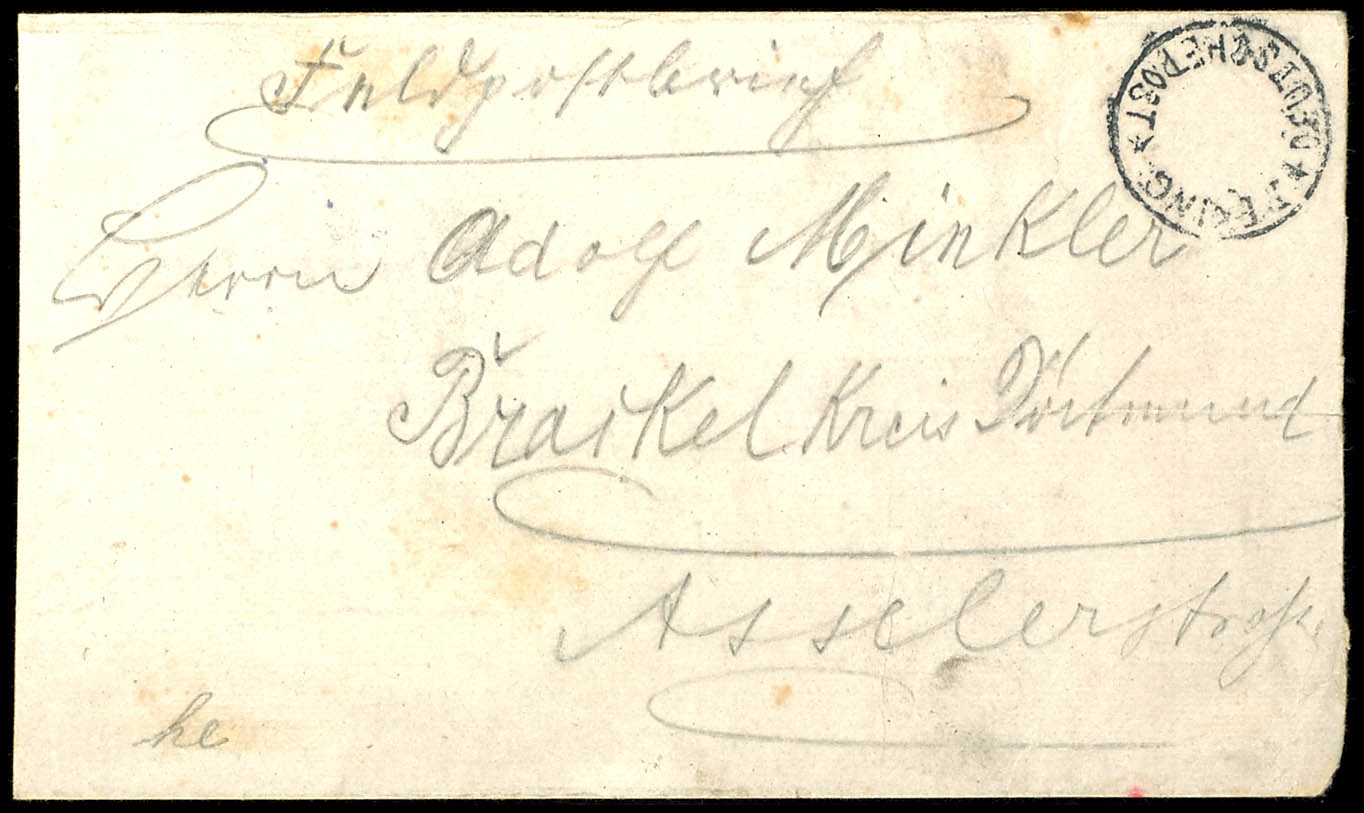 Feldpostbrief
DEUTSCHE POST * PEKING *
Herrn Adolf Minkler
Brackel Kreis Dortmund
Asselerstraße
he